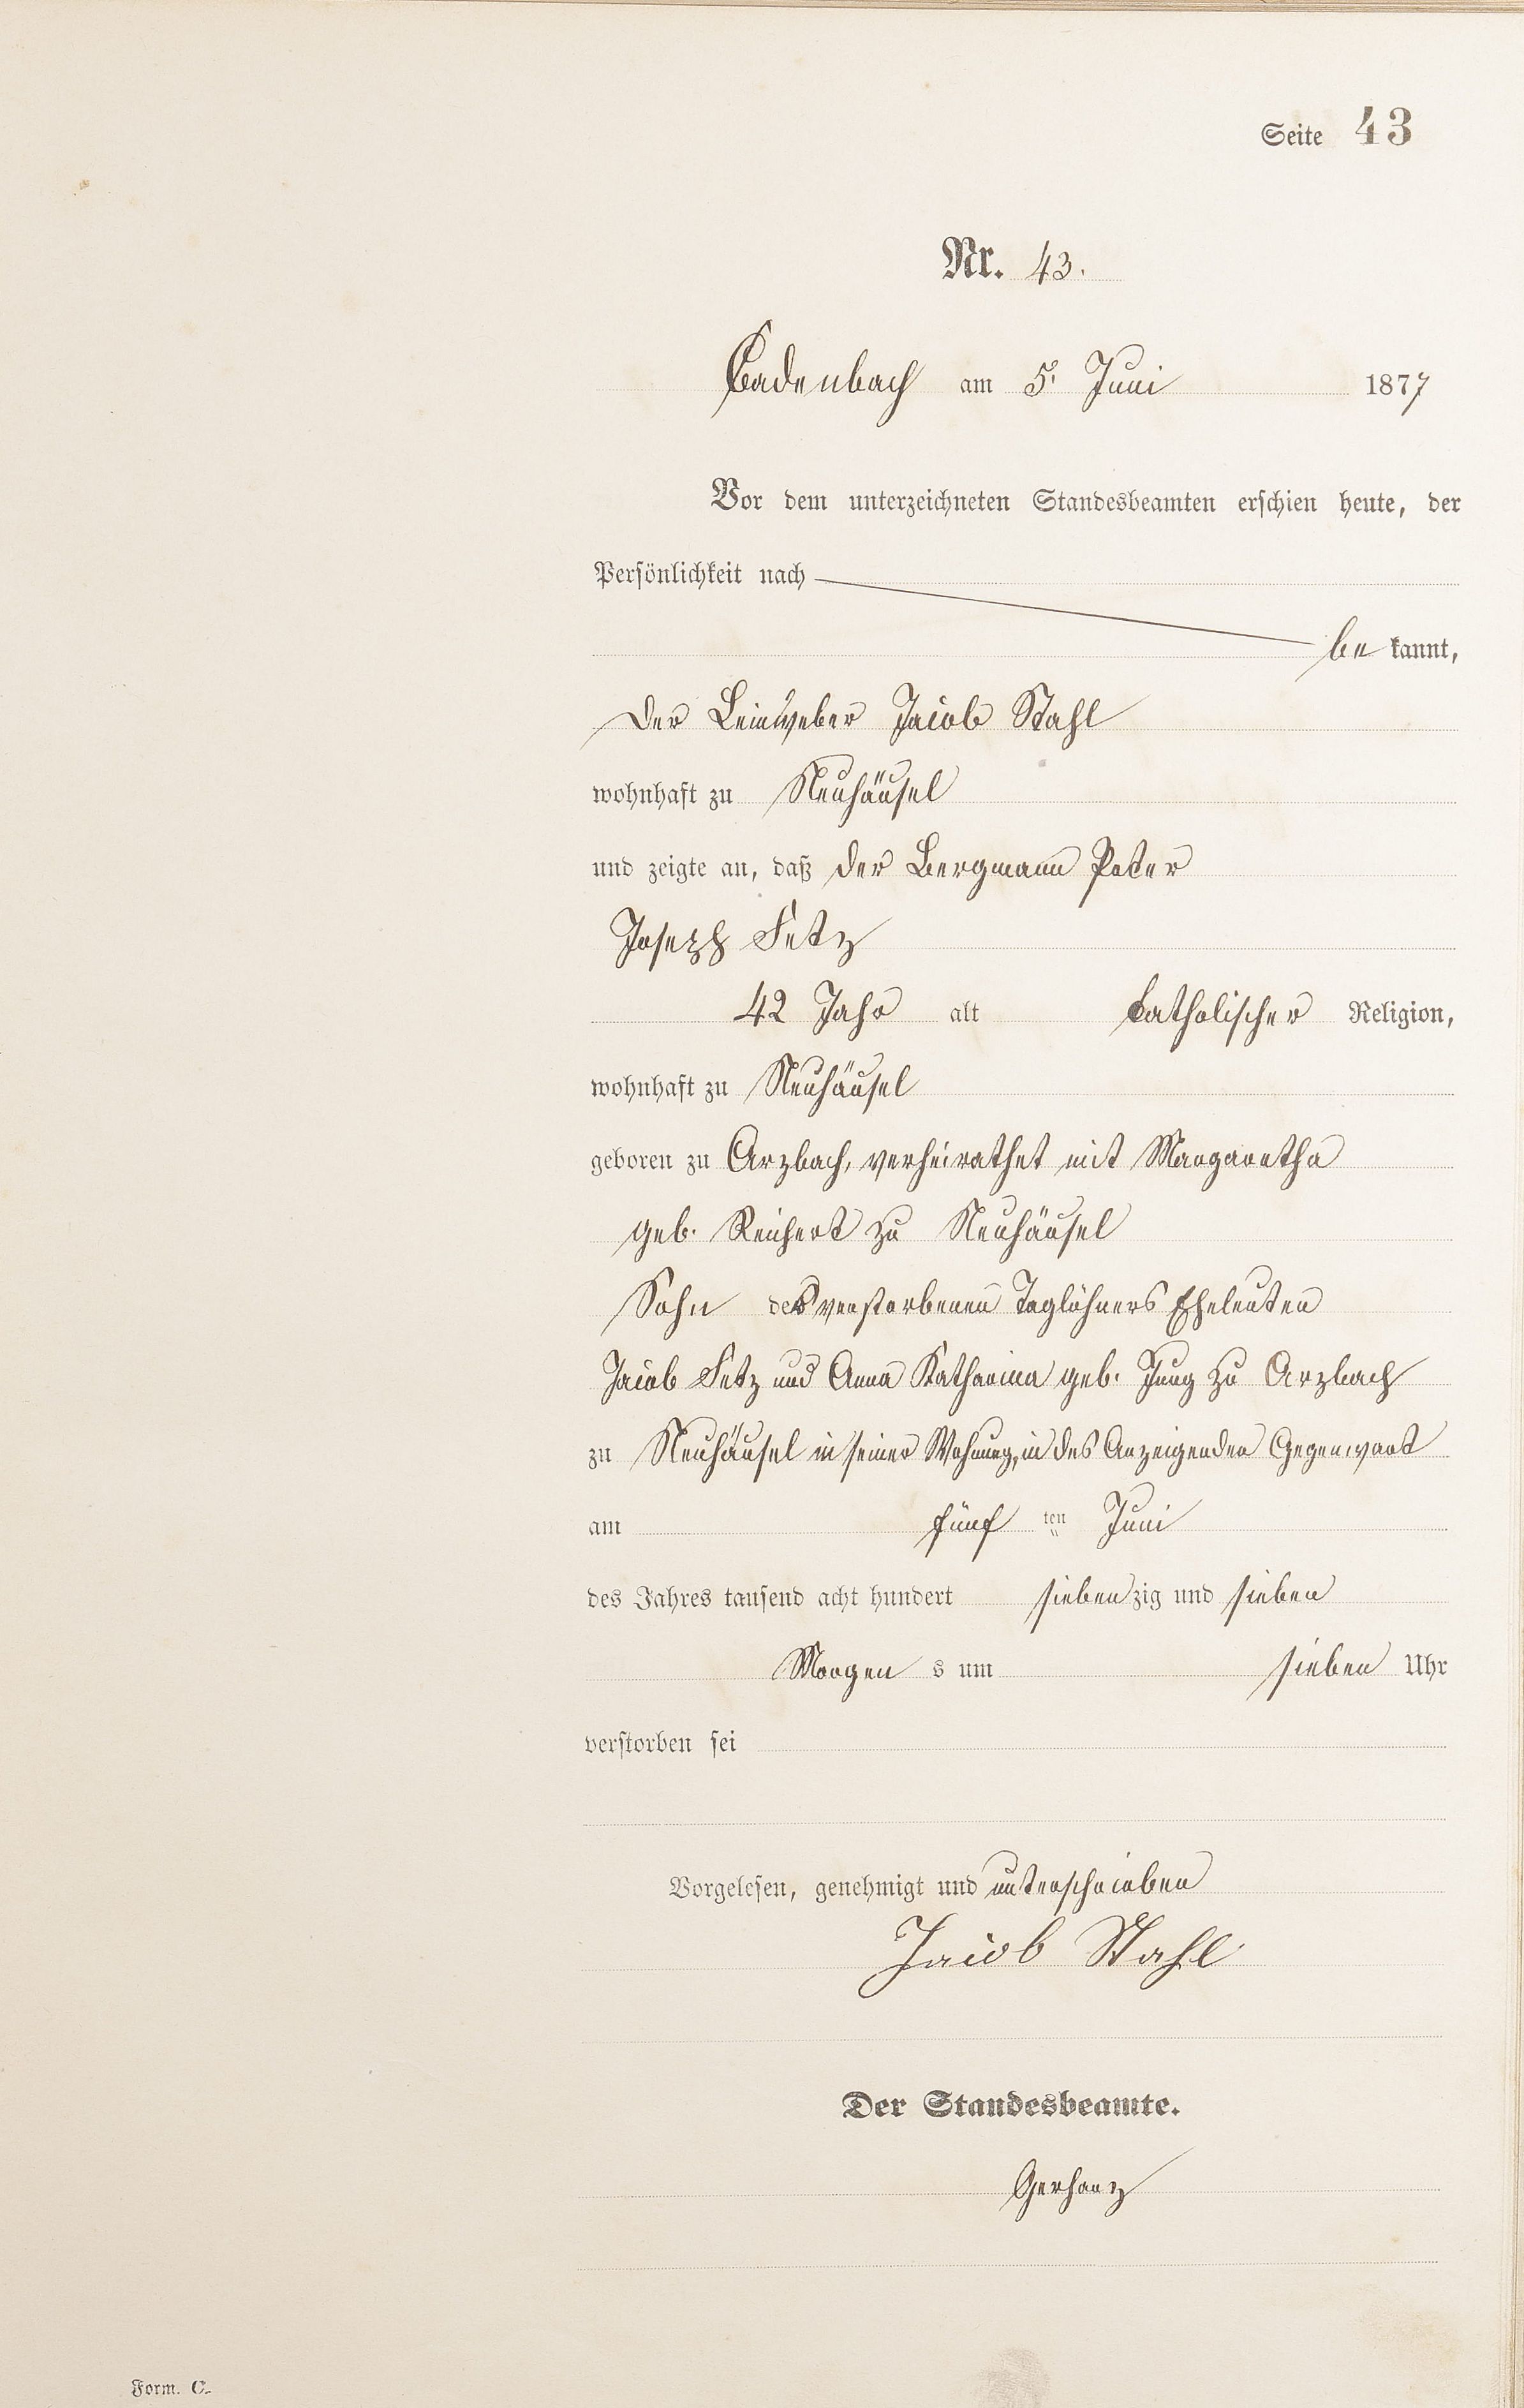 Seite 43
Nr. 43.
Cadenbach am 5. Juni 1877
Vor dem unterzeichneten Standesbeamten erschien heute, der
Persönlichkeit nach
be kannt,
der Leinweber Jacob Stahl
wohnhaft zu Neuhäusel
und zeigte an, daß der Bergmann Peter
Joseph Fetz
42 Jahr alt katholischer Religion,
wohnhaft zu Neuhäusel
geboren zu Arzbach, verheirathet mit Margaretha
geb. Reichert zu Neuhäusel
Sohn des verstorbenen Taglöhners Eheleuten
Jacob Fetz und Anna Katharina geb. Jung zu Arzbach
zu Neuhäusel in seiner Wohnung, in des Anzeigenden Gegenwart
am fünf ten Juni
des Jahres tausend acht hundert sieben zig und sieben
Morgen s um sieben Uhr
verstorben sei
Vorgelesen, genehmigt und unterschrieben
Jacob Stahl
Der Standesbeamte.
Gerharz
Form. C.